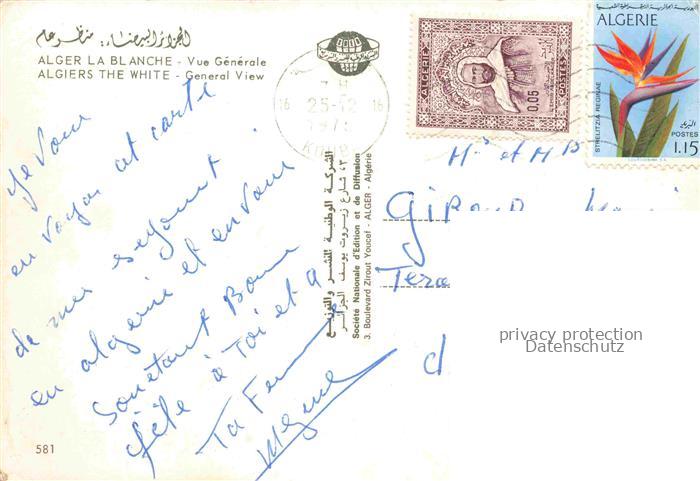 الجزائر البيضاء: منظر عام
ALGER LA BLANCHE - Vue Générale
ALGIERS THE WHITE - General View
Je vous
en voyai cet carte
de mes sejount
en algerie et en vous
Souetant Bonne
fête à Toi et a
Ta Femme
581
الشركة الوطنية للنشر والتوزيع
٣، شارع زيروت يوسف الجزائر
Société Nationale d'Edition et de Diffusion
3. Boulevard Zirout Youcef - ALGER - Algérie
16 25-12 16
ALGERIE
0,05
POSTES
ALGERIE
STRELITZIA REGINAE
POSTES
1.15
et
privacy protection
Datenschutz